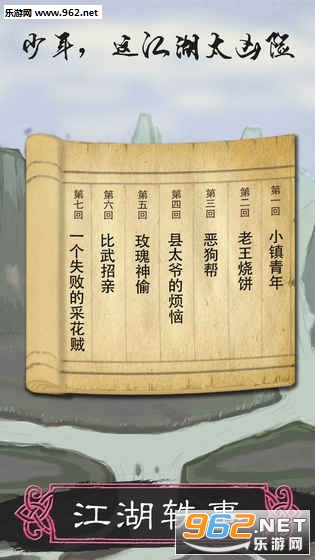 乐游网
www.962.net
少年，这江湖太凶险
第一回 小镇青年
第二回 老王烧饼
第三回 恶狗帮
第四回 县太爷的烦恼
第五回 玫瑰神偷
第六回 比武招亲
第七回 一个失败的采花贼
江湖轶事
962.NET
乐游网